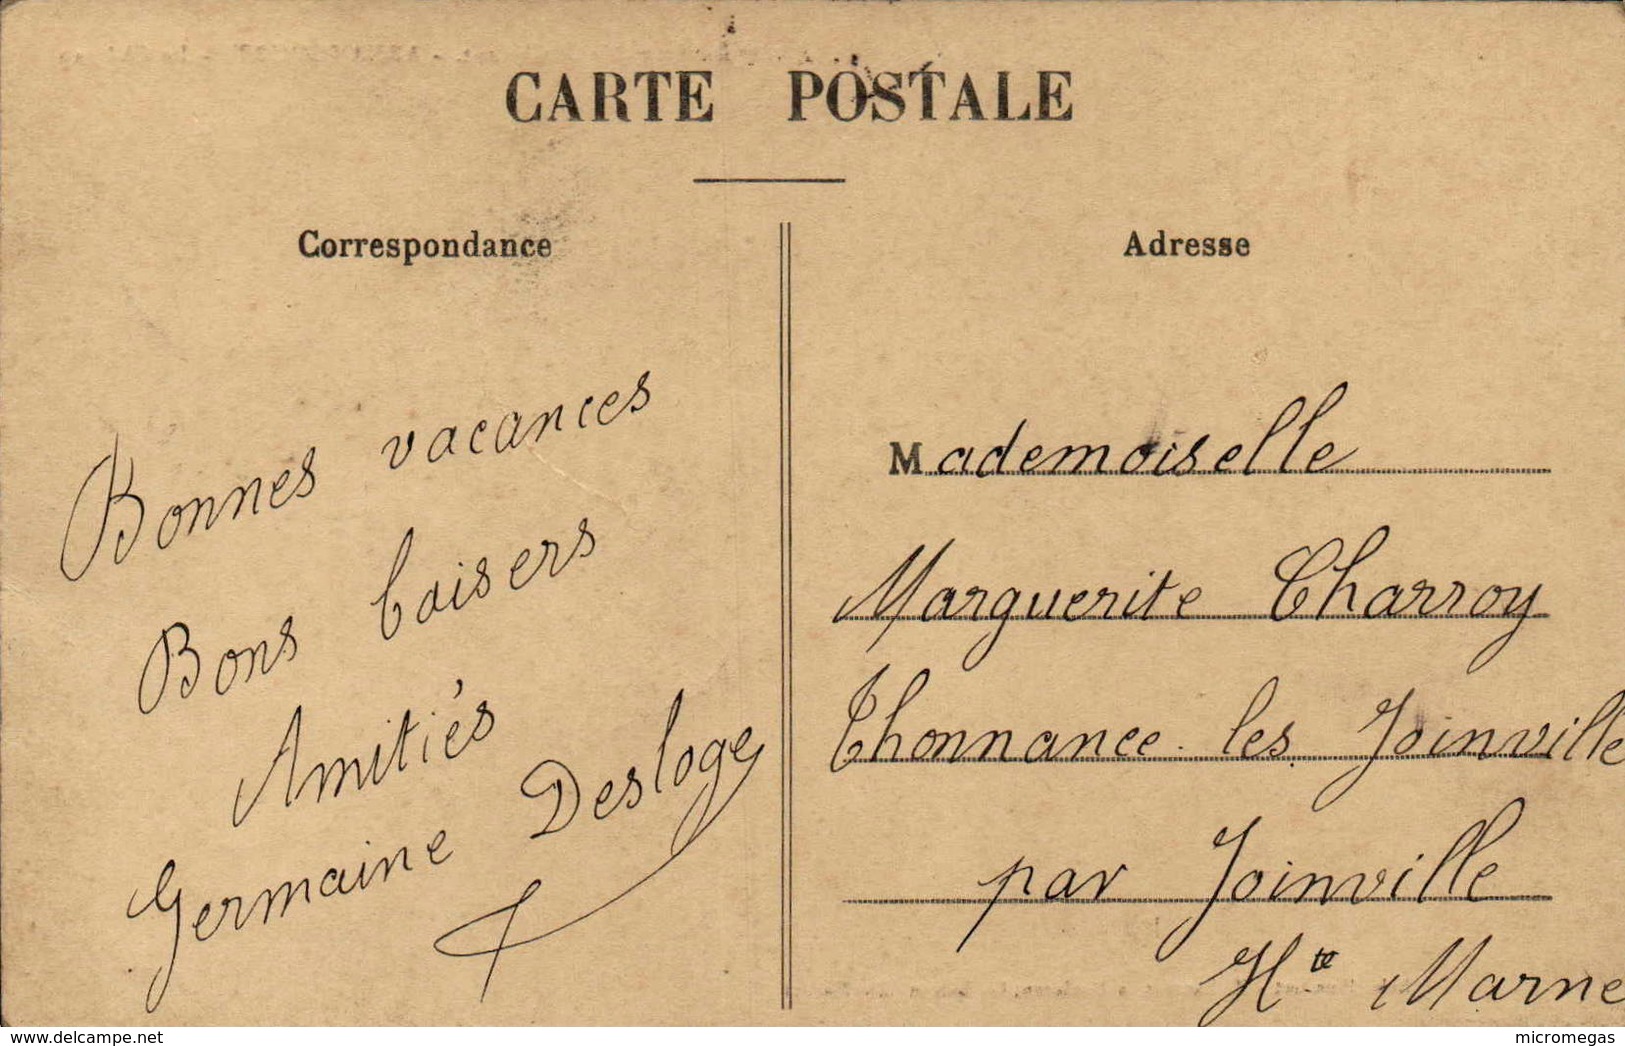 CARTE POSTALE
Correspondance
Bonnes vacances
Bons baisers
Amitiés
Germaine Desloge
Adresse
Mademoiselle
Marguerite Charroy
Thonnance-les Joinville
par Joinville
Hte Marne
www.delcampe.net
micromegas